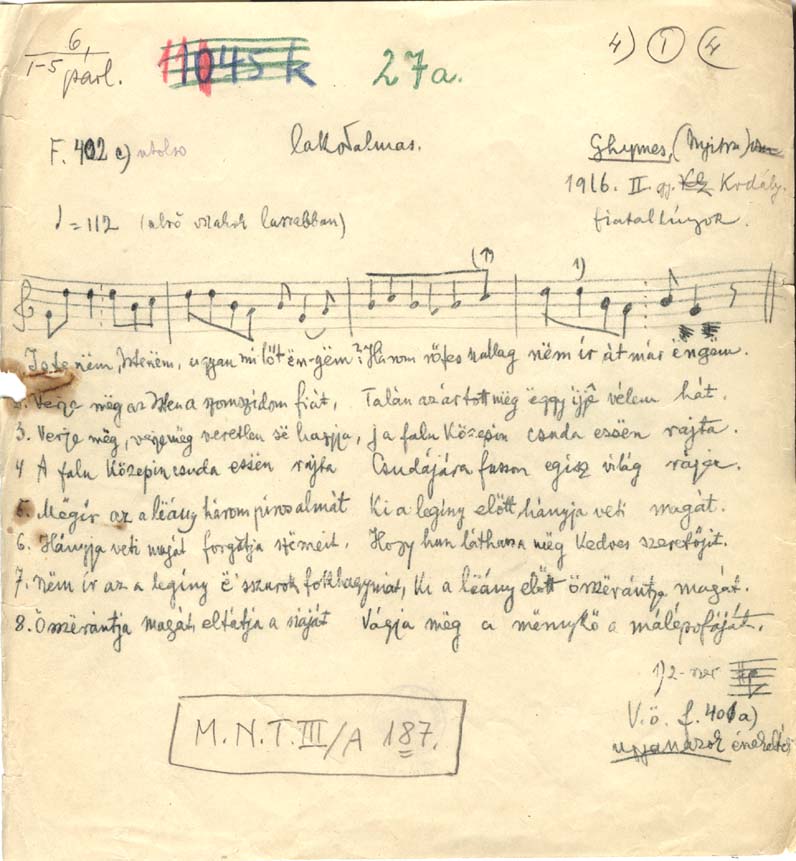 6,
1-5 párl.
1045 k
27a.
4) 1 4
F. 402 c) utolsó
lakodalmas.
Ghymes, (Nyitra)
1916. II. gy. Kodály.
fiatal lányok.
♩ = 112 (első szakok lassabban)
(↑)
1)
Istenëm, Istenëm, ugyan mi lőt ën-gëm? Három rőfës nallag nëm ír át már ëngëm.
2. Verje mëg az Isten a szomszídom fiát, Talán az ártott mëg ëggy íjjë vélem hát.
3. Verje mëg, verje mëg veretlen së hagyja, ja falu közepin csuda essën rajta.
4 A falu közepin csuda essën rajta Csudájára fusson egísz világ rájja.
5. Mëgír az a lëány három piros almát Ki a legíny előtt hányja veti magát.
6. Hányja veti magát forgatja szëmeit, Hogy hun láthassa mëg kedves szeretőjit.
7. Nëm ír az a legíny ë' szurok fokhagymát, Ki a lëány előtt összërántja magát.
8. Összërántja magát, eltátja a száját Vágja mëg a mënykő a málépofáját.
1) 2-szer
V.ö. f. 401a)
ugyanazok énekelték
M.N.T. III/A 187.